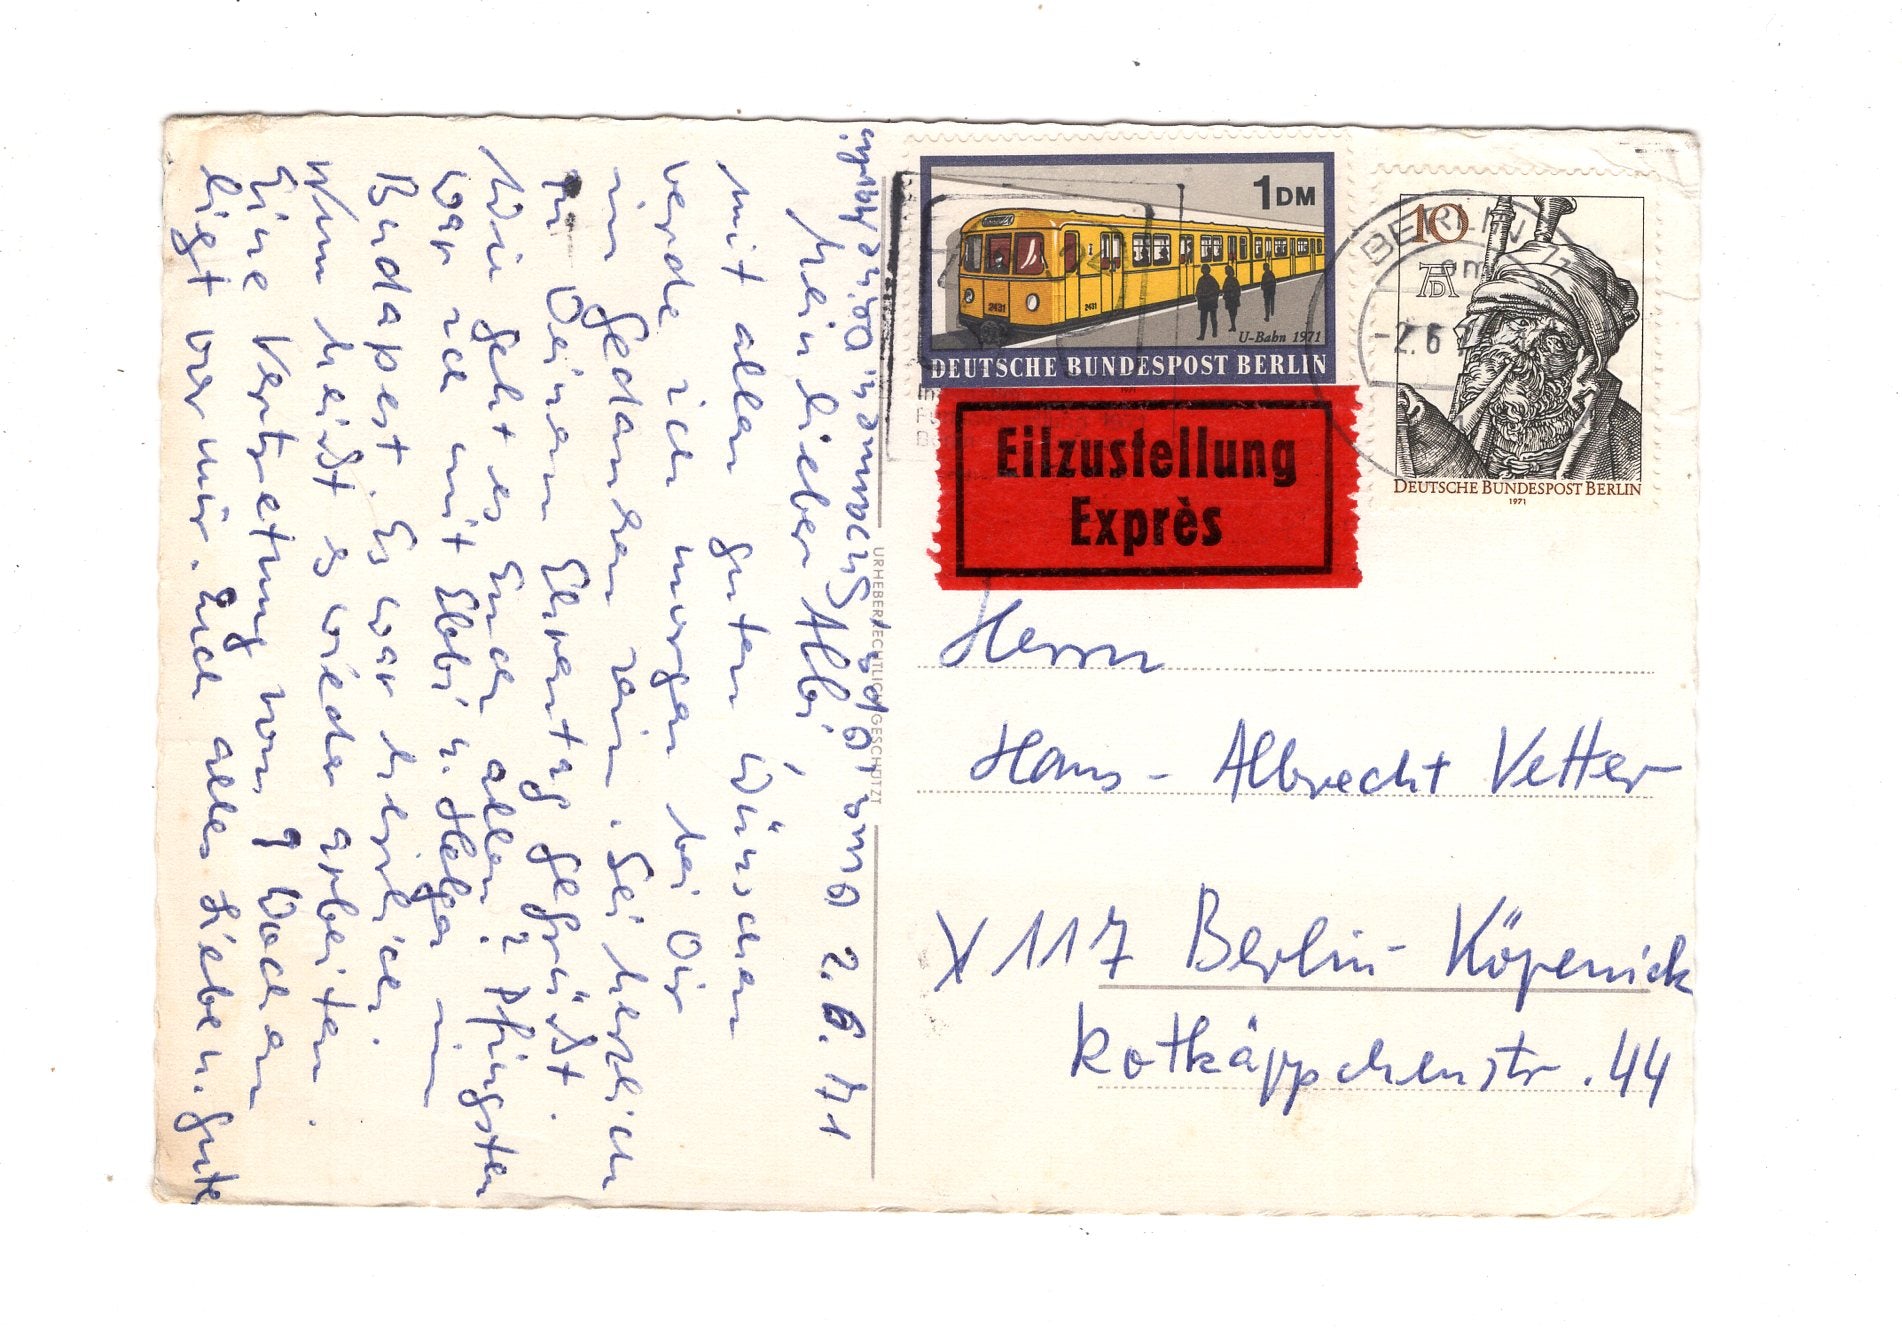 2.6.71
Mein lieber Albi
mit allen guten Wünschen
werde ich morgen bei Dir
in Gedanken sein. Sei herzlich
zu Deinem Ehrentag gegrüßt.
Wie geht es Euch allen? Pfingsten
war ich mit Ebbi u. Helga in
Budapest. Es war herrlich.
Nun heißt es wieder arbeiten.
Eine Vertretung von 9 Wochen
liegt vor mir. Euch alles Liebe u. Gute
Oma
URHEBERRECHTLICH GESCHÜTZT
1DM
2431
2431
U-Bahn 1971
DEUTSCHE BUNDESPOST BERLIN
10
AD
BERLIN
-2.6.7
DEUTSCHE BUNDESPOST BERLIN
1971
Eilzustellung
Exprès
Herrn
Hans-Albrecht Vetter
X 117 Berlin-Köpenick
Rotkäppchenstr. 44